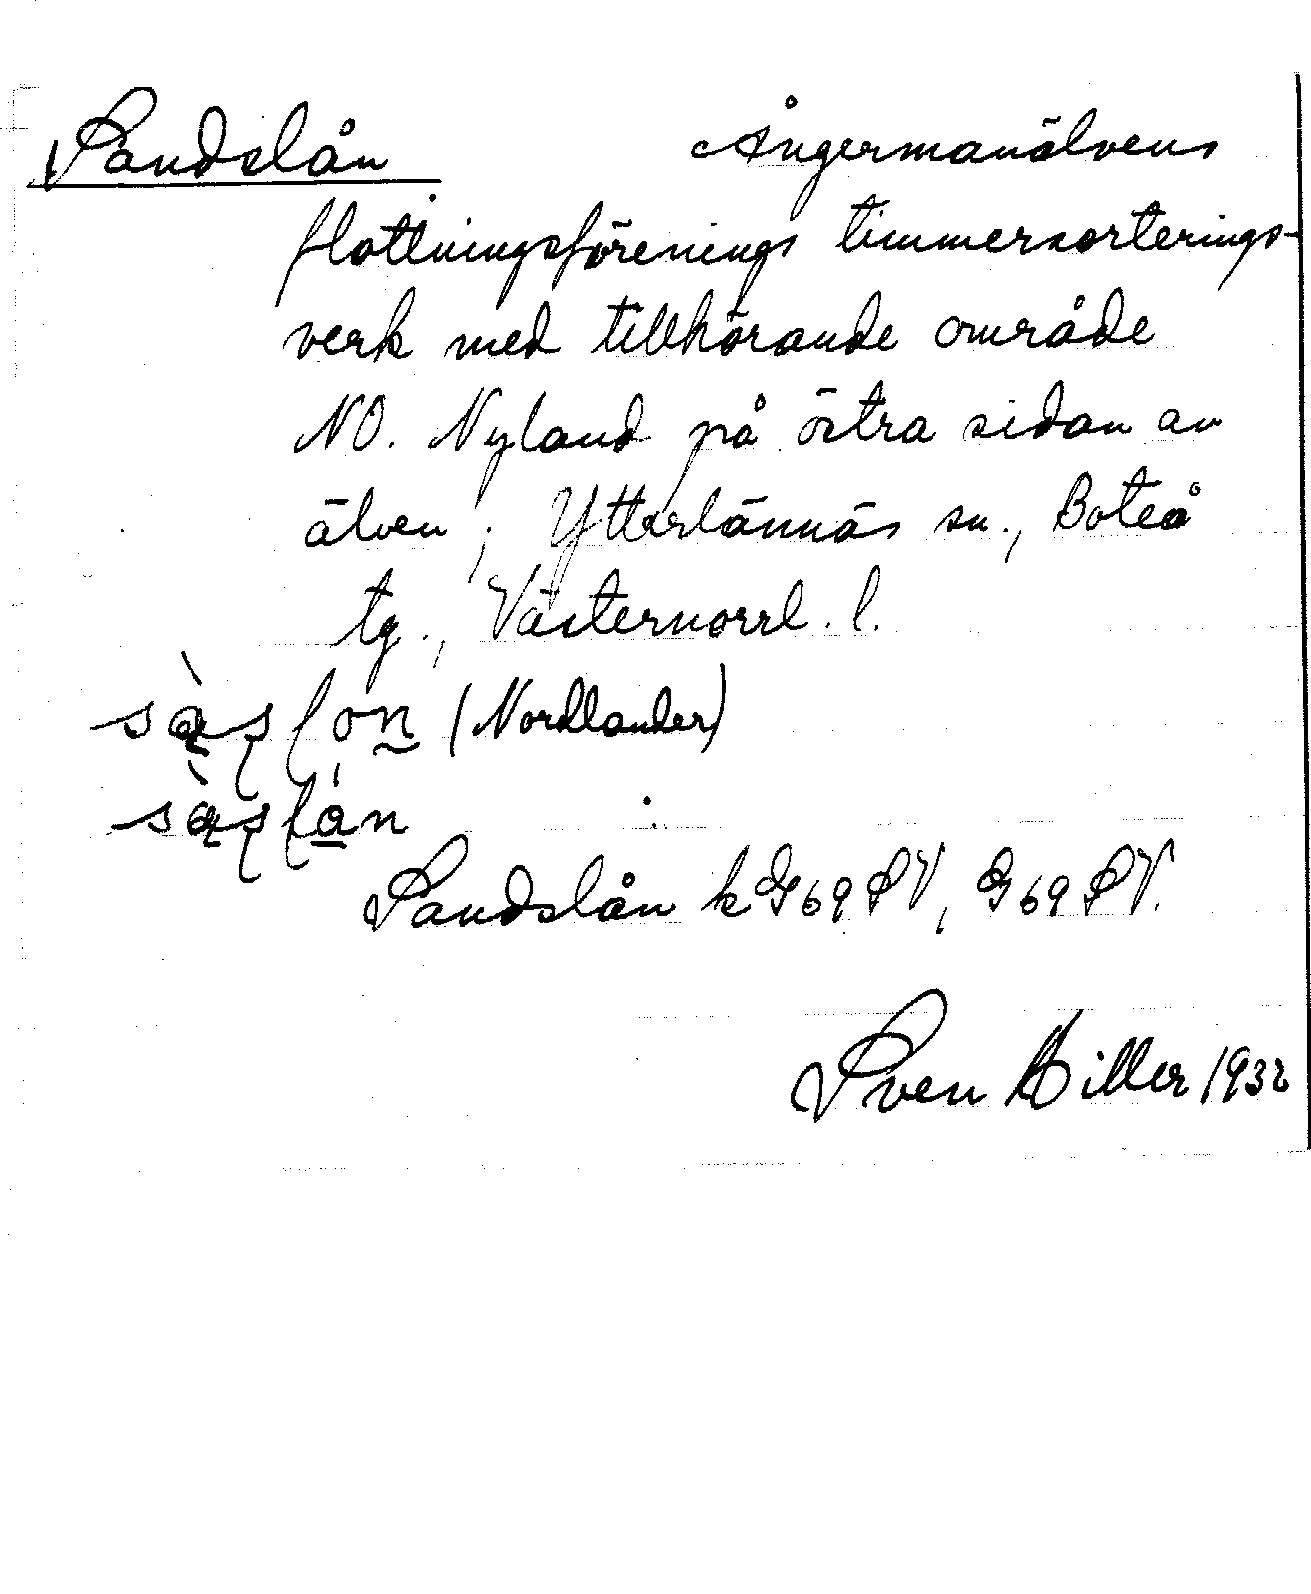 Sandslån Ångermanälvens
flottningsförenings timmersorterings-
verk med tillhörande område
NO. Nyland på östra sidan av
älven; Ytterlännäs sn., Boteå
tg., Västernorrl. l.
(Nordlander)
Sandslån k G69SV, G69SV.
Sven Hiller 1932